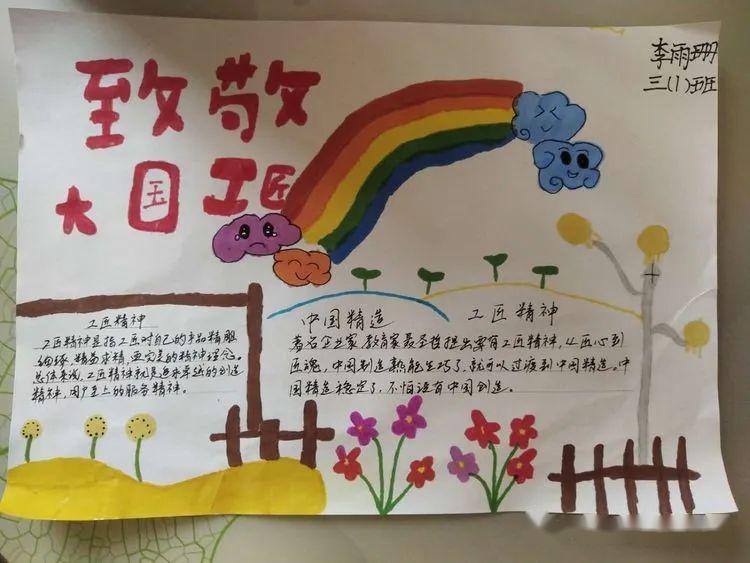 李雨珊
三(1)班
致敬
大国工匠
工匠精神
工匠精神是指工匠对自己的产品精雕
细琢,精益求精,更完美的精神理念。
总体来说,工匠精神就是追求卓越的创造
精神,用户至上的服务精神。
中国精造 工匠精神
著名企业家、教育家聂圣哲提出要有工匠精神,从匠心到
匠魂,中国制造熟能生巧了,就可以过渡到中国精造。中
国精造稳定了,不怕没有中国创造。